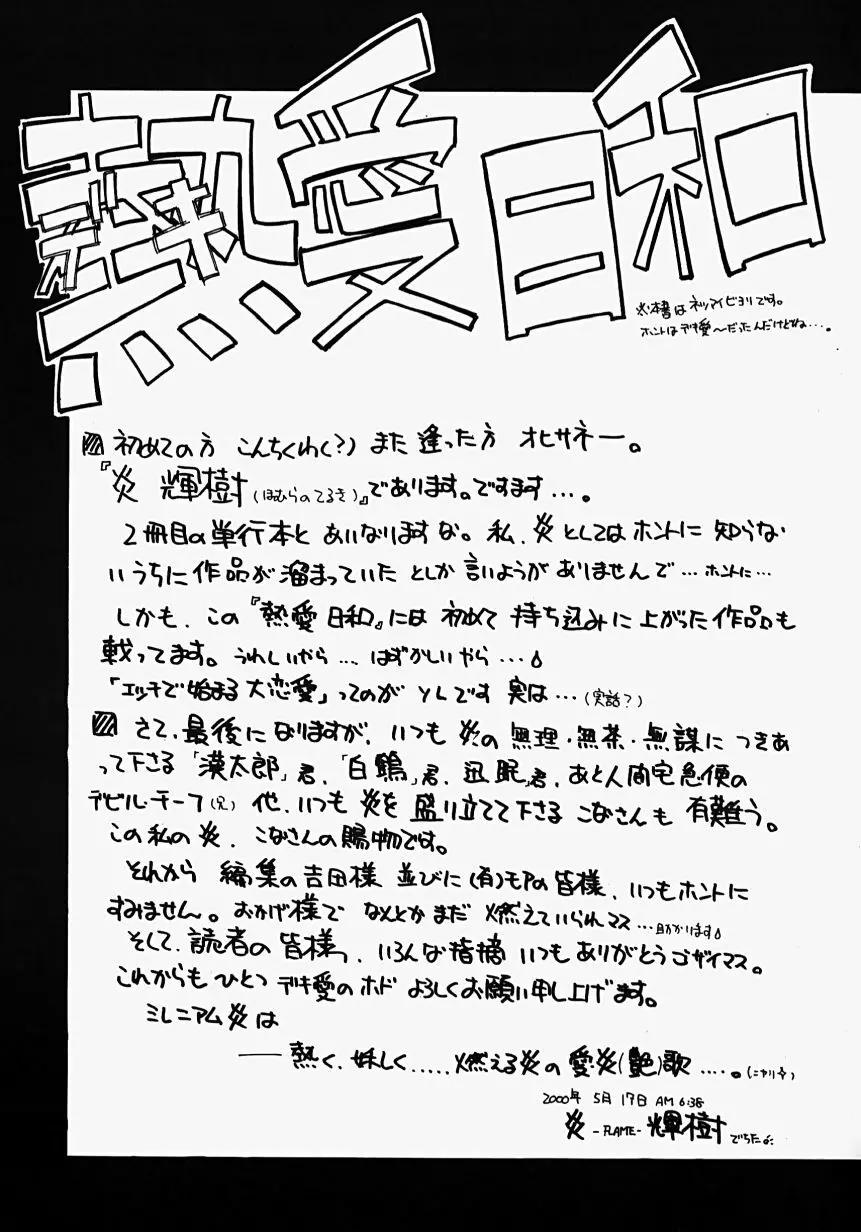 熱愛日和
デキ
※本書はネツアイビヨリです。
ホントはデキ愛〜だったんだけどね…。
初めての方 こんちくわ(?) また逢った方 オヒサネー。
『炎 輝樹(ほむらのてるき)』であります。ですます…。
2冊目の単行本とあいなりますな。私、炎としてはホントに知らな
いうちに作品が溜まっていたとしか言いようがありませんで…ホントに…
しかも、この『熱愛日和』には初めて持ち込みに上がった作品も
載ってます。うれしいやら…はずかしいやら…
「エッチで始まる大恋愛」ってのがソレです 実は…(実話?)
さて、最後になりますが、いつも炎の無理・無茶・無謀につきあ
って下さる「漢太郎」君、「白鶴」君、迅眠君、あと人間宅急便の
デビル・チーフ(兄)他、いつも炎を盛り立てて下さるこなさんも有難う。
この私の炎、こなさんの賜物です。
それから編集の吉田様 並びに(有)モアの皆様、いつもホントに
すみません。おかげ様でなんとかまだ燃えていられマス…助かります
そして、読者の皆様っ、いろんな指摘いつもありがとうゴザイマス。
これからもひとつデキ愛のホドよろしくお願い申し上げます。
ミレニアム炎は
――熱く、妖しく.....燃える炎の愛炎(艶)歌…..。(ニヤリ)
2000年 5月 17日 AM 6:38
炎 -FLAME- 輝樹 でちたよ